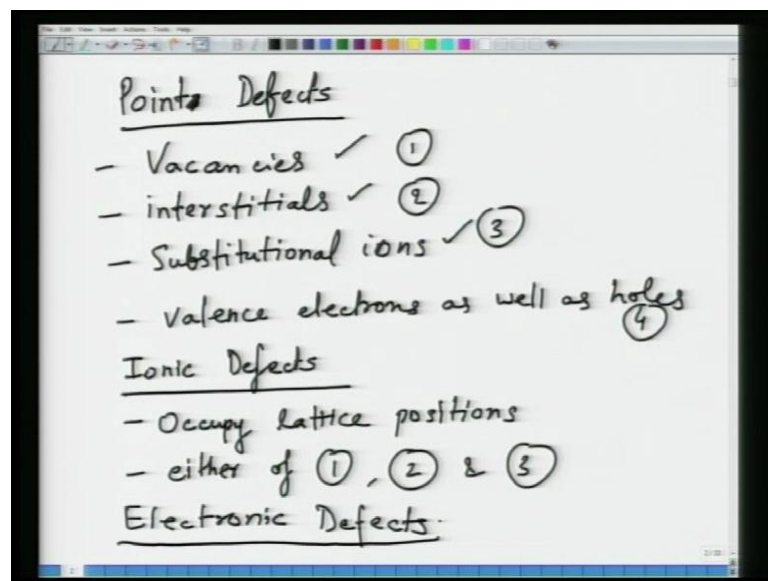 File Edit View Insert Actions Tools Help
Point Defects
- Vacancies ✓ ①
- interstitials ✓ ②
- Substitutional ions ✓ ③
- Valence electrons as well as holes
④
Ionic Defects
- Occupy Lattice positions
- either of ①, ② & ③
Electronic Defects.